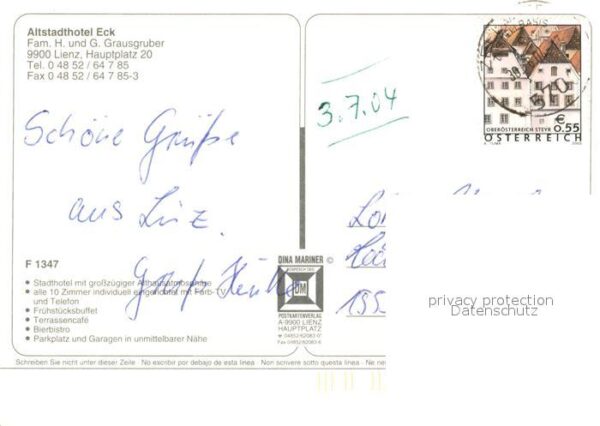 Altstadthotel Eck
Fam. H. und G. Grausgruber
9900 Lienz, Hauptplatz 20
Tel. 0 48 52 / 64 7 85
Fax 0 48 52 / 64 7 85-3
3.7.04
OBERÖSTERREICH STEYR
€ 0.55
ÖSTERREICH
Schöne Grüße
aus Linz
F 1347
• Stadthotel mit großzügiger
• alle 10 Zimmer individuell eingerichtet mit Farb-TV
und Telefon
• Frühstücksbuffet
• Terrassencafé
• Bierbistro
• Parkplatz und Garagen in unmittelbarer Nähe
DINA MARINER ©
DM
POSTKARTENVERLAG
A-9900 LIENZ
HAUPTPLATZ
privacy protection
Datenschutz
Schreiben Sie nicht unter dieser Zeile · No escribir por debajo de esta línea · Non scrivere sotto questa linea · Ne